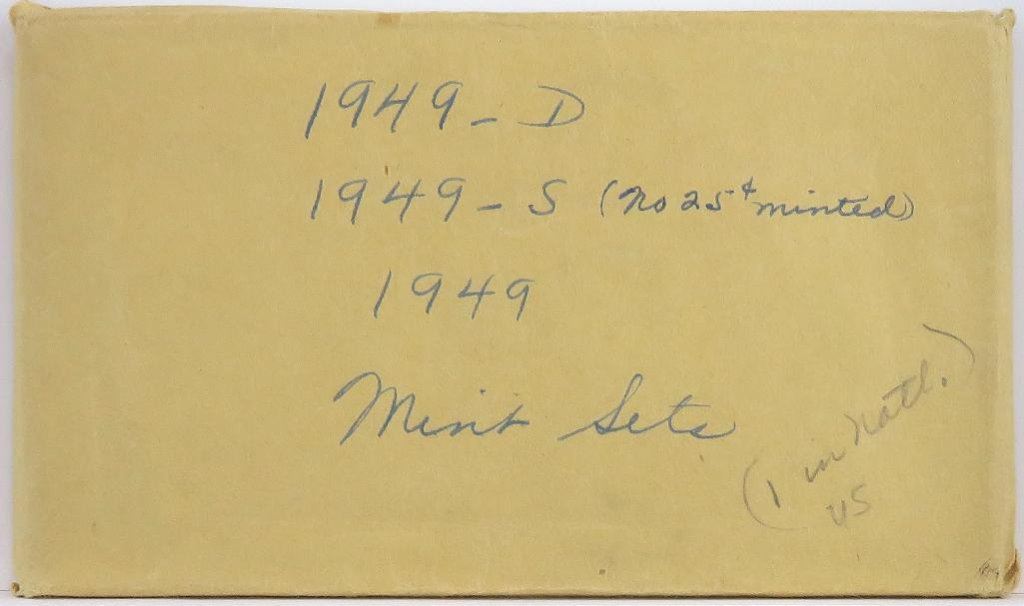 1949-D
1949-S (no 25¢ minted)
1949
Mint Sets
(1 in natl.)
US